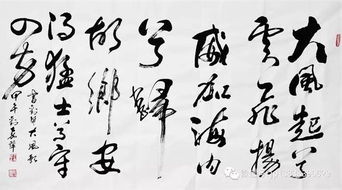 大風起兮
雲飛揚
威加海内
兮歸
故鄉安
得猛士兮守
四方
大風歌
甲午